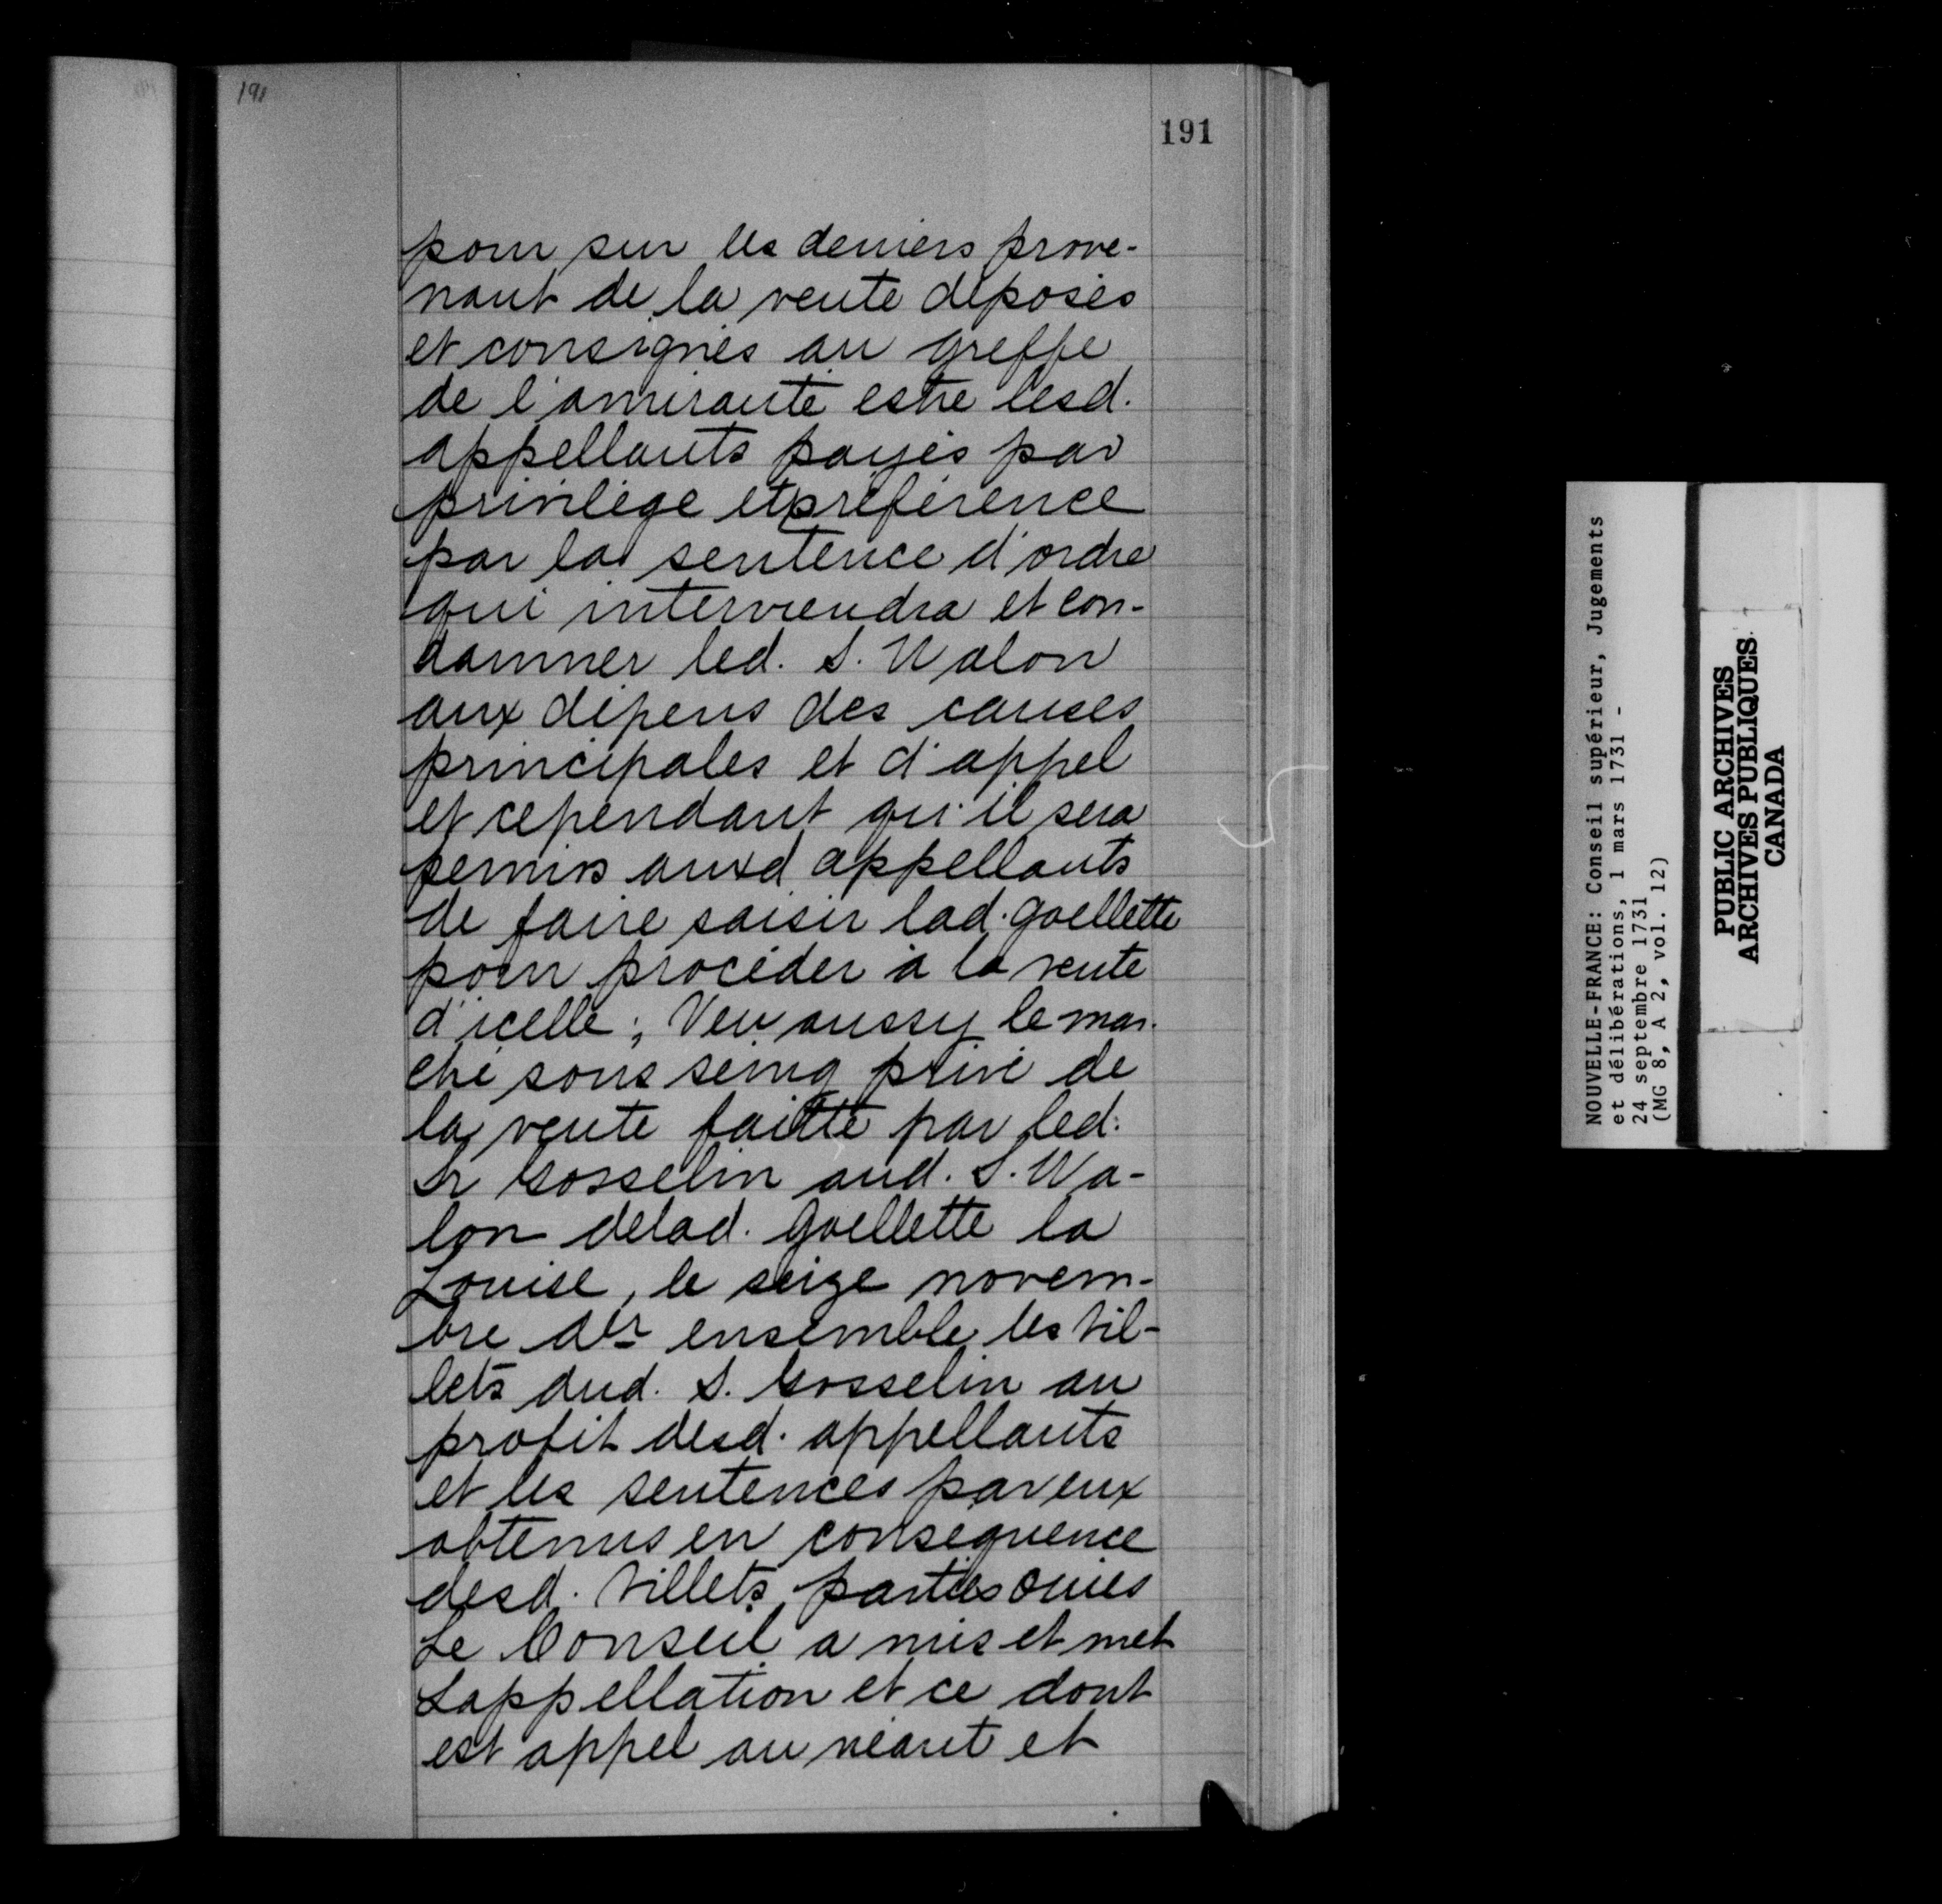 191
191
pour sur les deniers prove-
nant de la vente déposés
et consignés au greffe
de l'amirauté estre lesd.
appellants payés par
privilège et préférence
par la sentence d'ordre
qui interviendra et con-
damner led. S. Walon
aux dépens des causes
principales et d'appel
et cependant qu'il sera
permis auxd appellants
de faire saisir lad. goellette
pour procéder à la vente
d'icelle; Veu aussy le mar-
ché sous seing privé de
la vente faitte par led.
Sr Gosselin aud. S. Wa-
lon delad. goellette la
Louise, le seize novem-
bre der ensemble les bil-
lets dud. S. Gosselin au
profit desd. appellants
et les sentences par eux
obtenus en conséquence
desd. billets, parties ouies
Le Conseil a mis et met
Lappellation et ce dont
est appel au néant et
NOUVELLE-FRANCE: Conseil supérieur, Jugements
et délibérations, 1 mars 1731 -
24 septembre 1731
(MG 8, A 2, vol. 12)
PUBLIC ARCHIVES
ARCHIVES PUBLIQUES
CANADA